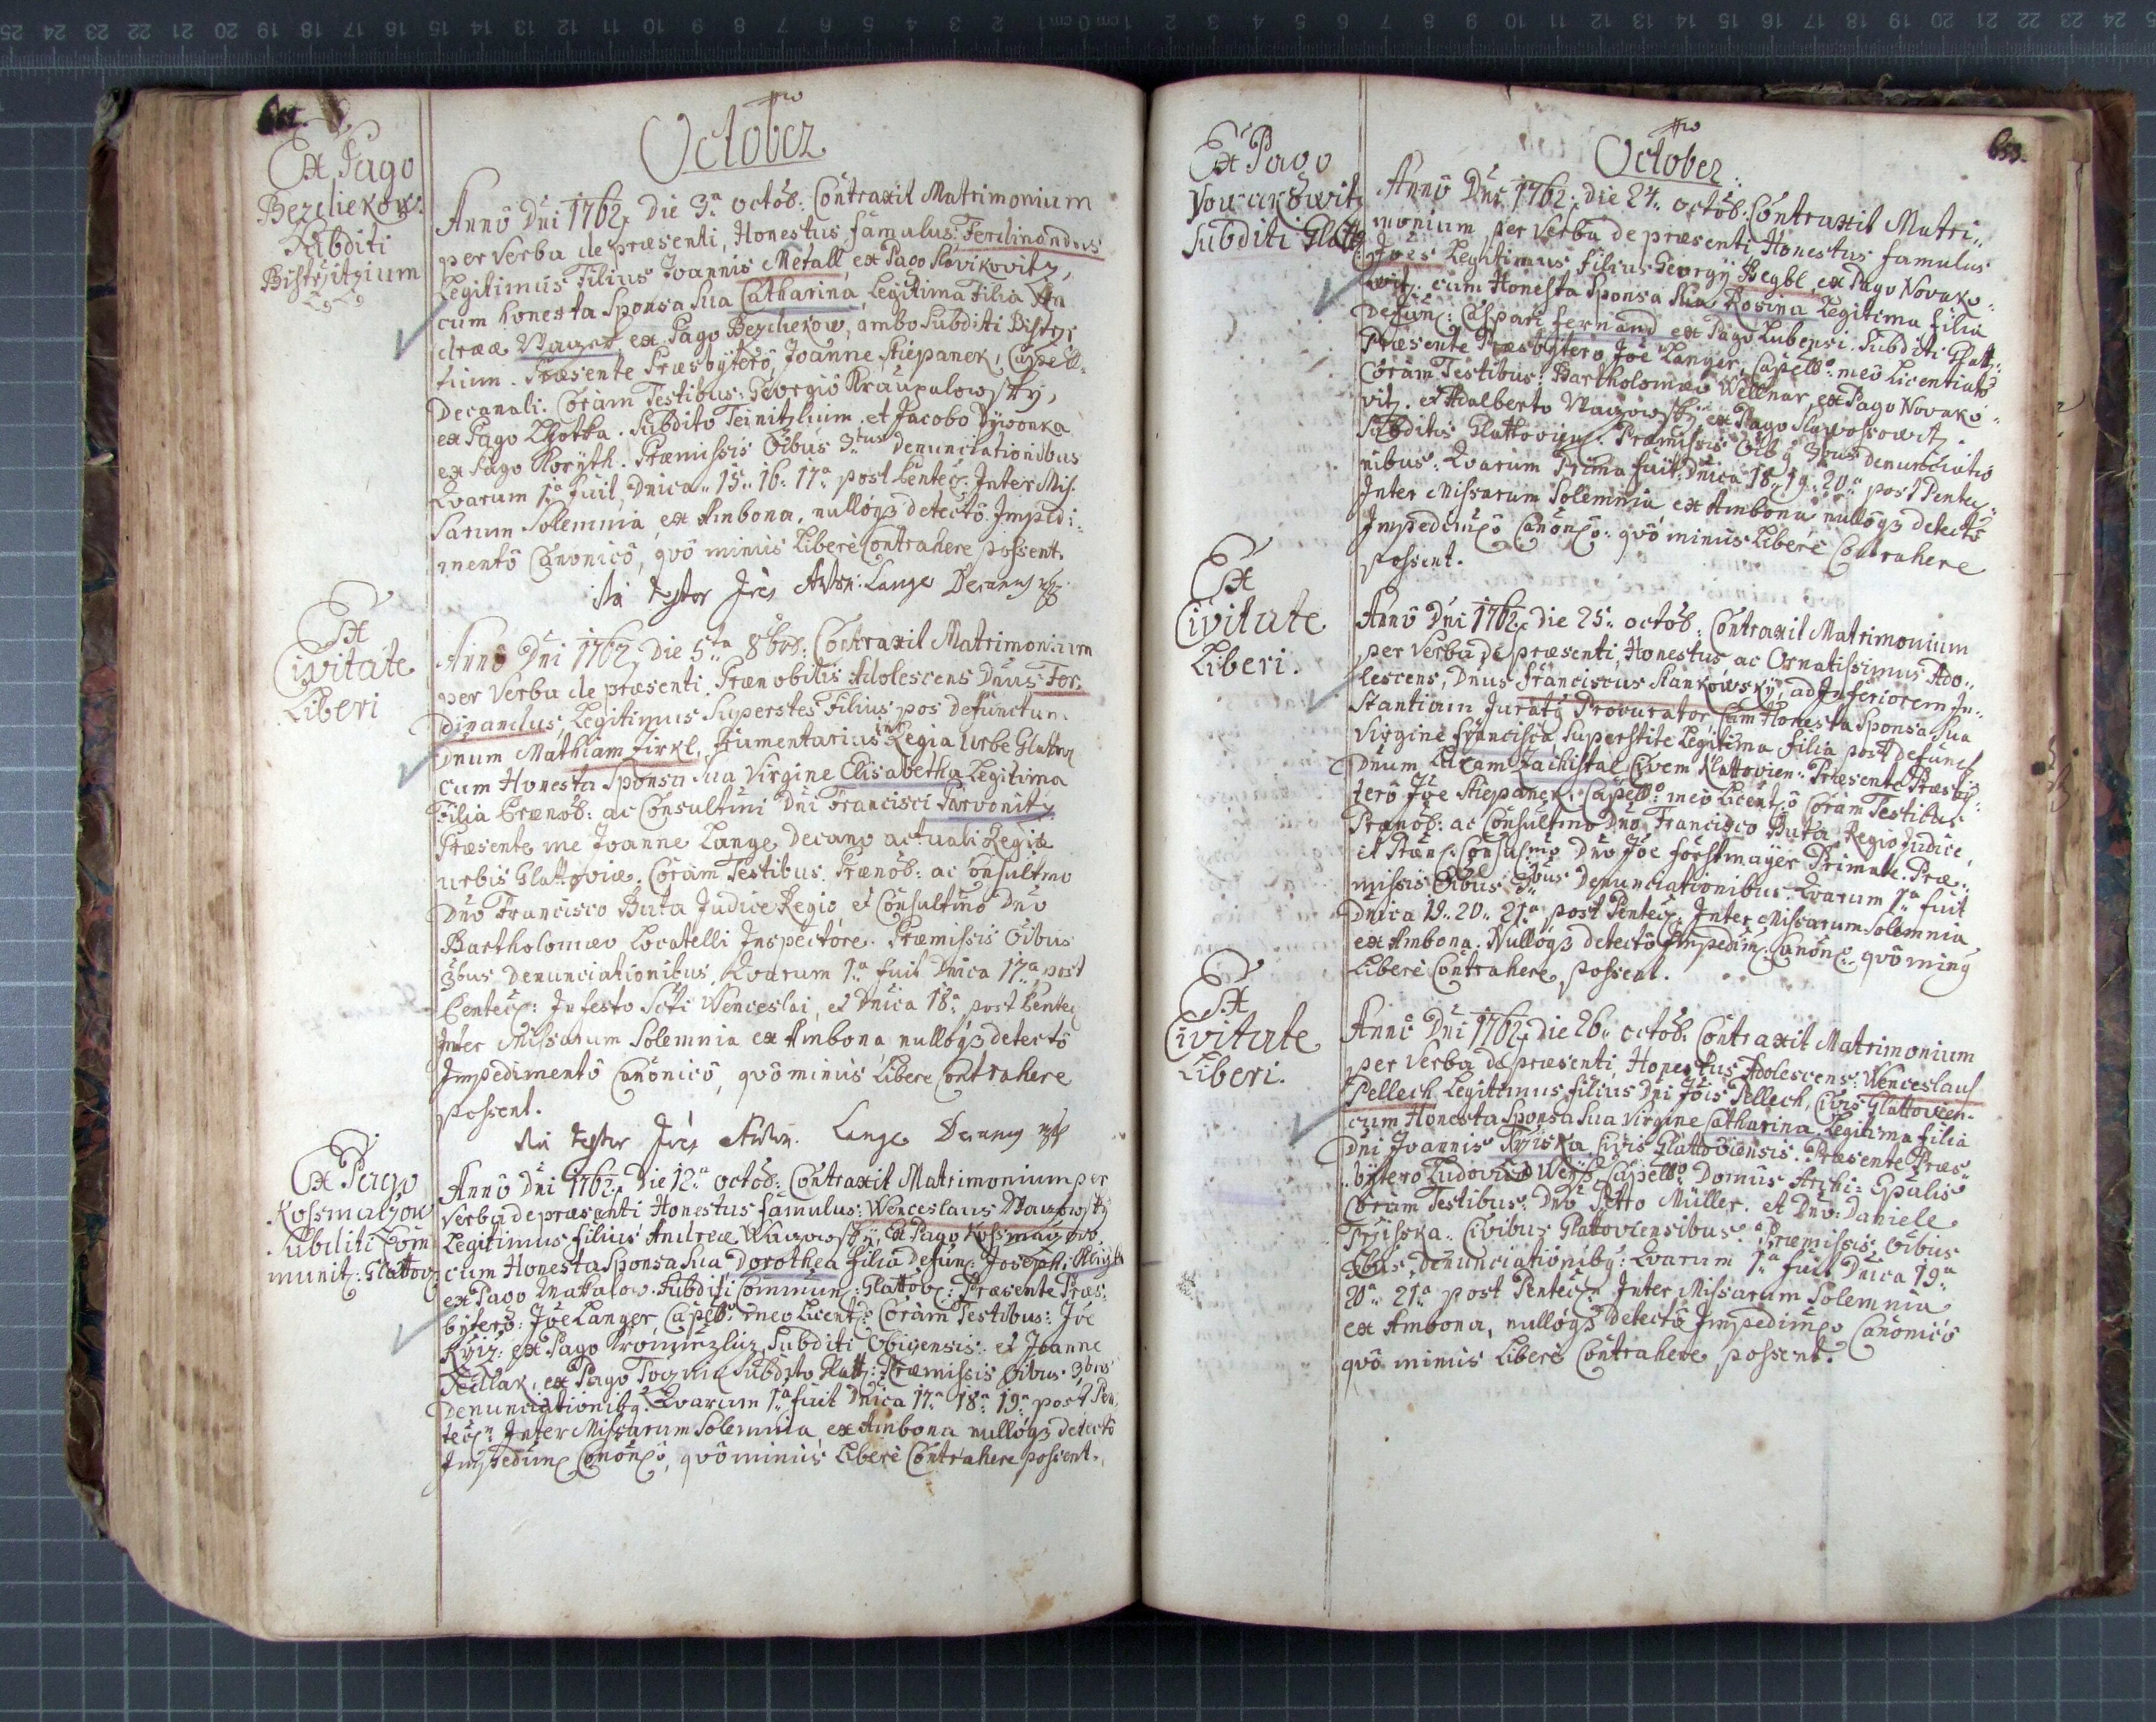 652.
October
Ex Pago
Bezdiekow.
Subditi
Bistrzitzium
Anno Dni 1762. Die 3ª octob: Contraxit Matrimonium
per Verba de præsenti, Honestus famulus: Ferdinandus
Legitimus Filius Joannis Metall, ex Pago Slovikovitz,
cum honesta Sponsa Sua Catharina, Legitima Filia An
dreæ ex Pago Bezdiekow, ambo Subditi Bistrzi
tium. Præsente Præsbytero, Joanne Stiepanek, Capell:
Decanali. Coram Testibus: Georgio Kraupalowsky,
ex Pago Lhotka. Subdito Teinitzlium. et Jacobo Dÿwonka
ex Pago Korÿth. Præmissis Oibus 3.bus denunciationibus
Qvarum 1ª fuit, Dnica 15. 16. 17ª post Pentec. Inter Mis.
sarum Solemnia, ex Ambona, nullóq3 detectô. Impedi:
mentô Canonicô, qvô minus Liberè Contrahere possent.
ita testor Jões Anton: Lange Decanus
Ex
Civitate
Liberi
Anno Dni 1762. Die 5ta 8bris: Contraxit Matrimonium
per Verba de præsenti. Prænobilis Adolescens Dnus Fer,
dinandus, Legitimus Superstes Filius pos Defunctum
Dnum Mathiam Zirkl, Frumentarius in Regia Urbe Glattov
cum Honesta Sponsa Sua Virgine Elisabetha Legitima
Filia Prænob: ac Consultmi Dni Francisci Parvonitz.
Præsente me Joanne Lange Decano actuali Regiæ
urbis Glattoviæ. Coram Testibus. Prænob: ac Consultmo
Dno Francisco Buta Judice Regio, et Consultmo Dno
Bartholomæo Locatelli Inspectore. Præmissis Oibus
3bus Denunciationibus, Qvarum 1ª fuit Dnica 17ª post
Pentec: In festo Scti Wenceslai, et Dnica 18ª post Pentec
Inter Missarum Solemnia ex Ambona nullóq3 detectô
Impedimentô Canonicô, qvô minus Liberè Contrahere
possent.
ita testor Jões Anton. Lange Decanus
Ex Pago
Kossmatzow
Subditi Com
munit: Glattov:
Anno Dni 1762. Die 12ª octob: Contraxit Matrimonium per
Verba de præsenti Honestus famulus: Wenceslaus
Legitimus filius Andreæ Ex Pago Kossmatzow.
cum Honesta Sponsa Sua Dorothea filia Defun: Joseph:
ex Pago Mattalow. Subditi Commun: Glattov: Præsente Præs:
bÿtero: Jõe Langer, Capell: meo Licent: Coram Testibus: Jõe
ex Pago Subditi et Joanne
Sedlak, ex Pago Subdito Glatt: Præmissis Oibus 3bus
Denunciationibq: Qvarum 1ª fuit Dnica 17ª 18ª 19ª post Pen
tec: Inter Missarum Solemnia, ex Ambona nullóq3 detectô
Impedim Canonco, qvô minus Liberè Contrahere possent.
653.
October
Ex Pago
Novakowitz
Subditi Glatto
Anno Dni 1762. Die 24. octob: Contraxit Matri,,
monium per Verba de præsenti Honestus famulus
Jões Legitimus filius Georgÿ Begbl, ex Pago Novako:
witz. cum Honesta Sponsa Sua Rosina Legitima filia
Defun: Caspari Fernand ex Pago Lubensi. Subditi Glatt:
Præsente Præsbytero Jõe Langer, Capell: meo Licentiato
Coram Testibus: Bartholomæo Wellnar, ex Pago Novako:
vitz. et Adalberto ex Pago Slawossowitz.
Subditis Glattovien. Præmissis Oibq 3bus denunciatio
nibus: Qvarum Prima fuit Dnica 18. 19. 20ª post Pentec
Inter Missarum Solemnia ex Ambona nullóq3 detectô
Impedimcô Canoncô: qvô minus Liberè Contrahere
possent.
Ex
Civitate
Liberi.
Anno Dni 1762. Die 25. octob. Contraxit Matrimonium
per Verba de præsenti, Honestus ac Ornatissimus Ado,,
lescens, Dnus Franciscus Stankowskÿ, ad Inferiorem In,,
stantiam Juratq Procurator, Cum Honesta Sponsa Sua
Virgine Francisca, Superstite Legitima filia post Defunct
Dnum Lucam Zachistal Civem Klattovien: Præsente Præsby:
tero Jõe Stiepanek, Capell: meo Licent:ô Coram Testibus
Prænob: ac Consultmo Dno Francisco Buta Regio Judice,
et Dno Jõe Forstmayer Primate. Præ,,
missis Oibus 3bus Denunciationibus. Qvarum 1ª fuit
Dnica 19. 20. 21ª post Pentec. Inter Missarum Solemnia
ex Ambona. Nullóq3 detectô Impedim: Canonc: qvô minq
Liberè Contrahere possent.
Ex
Civitate
Liberi.
Anno Dni 1762. Die 26. octob. Contraxit Matrimonium
per Verba de præsenti, Honestus Adolescens: Wenceslaus
Pellech Legitimus filius Dni Jõis Pellech, Civis Glattovien.
cum Honesta Sponsa Sua Virgine Catharina, Legitima filia
Dni Joannis Trziska, Civis Glattoviensis. Præsente Præs,,
bÿtero Ludovico Capell: Domus Archi: Epalis
Coram Testibus: Dno Petro Müller. et Dno: Daniele
Trzisska. Civibus Glattoviensibus. Præmissis Oibus
3bus, denunciationibq: Qvarum 1ª fuit Dnica 19ª
20ª 21ª post Pentec: Inter Missarum Solemnia
ex Ambona, nullóq3 Detectô Impedimcô Canonicô
qvô minus Liberè Contrahere possent.